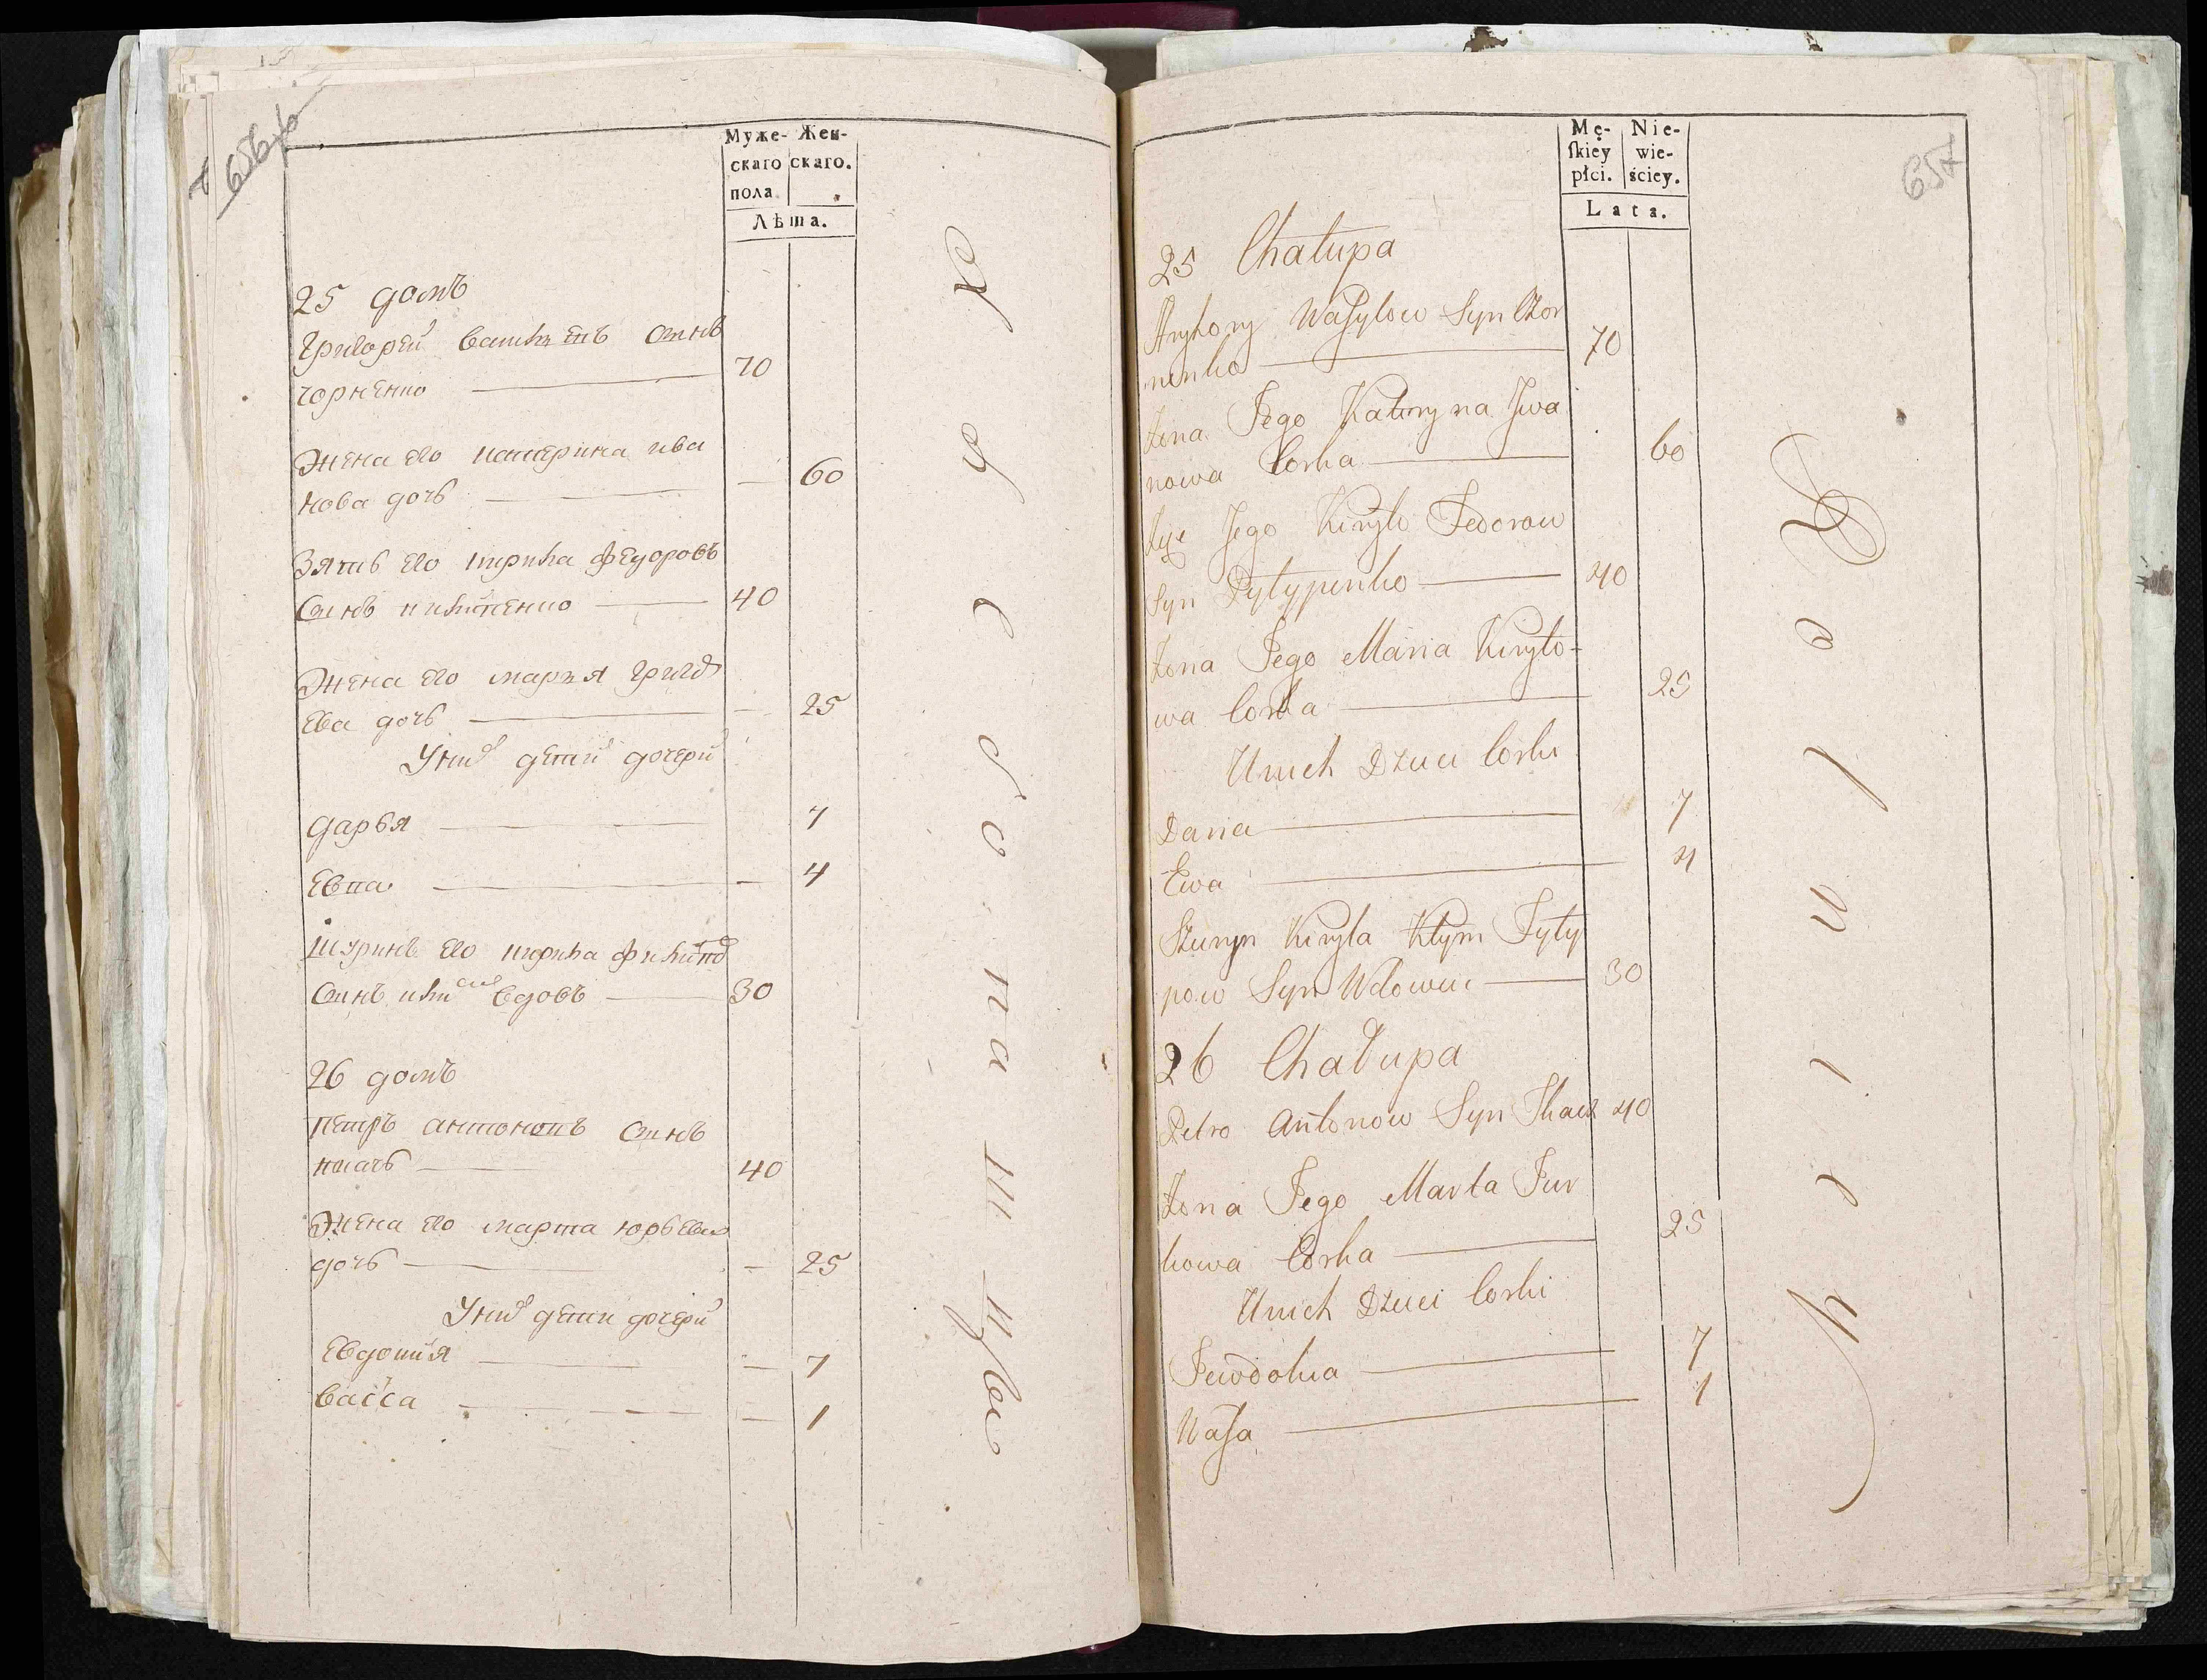 656
Муже-
скаго
пола.
Жен-
скаго.
Лѣта.
25 домъ
Григорей василевъ сынъ
чорненко 70
Жена его катерина ива
нова дочь 60
Зять его кирила федоровъ
сынъ пилипенко 40
Жена его марья григо
ева дочь 25
У них детей дочерей
дарья 7
Евва 4
Шуринъ его кирила филипо
сынъ вдовъ 30
26 домъ
петръ антоновъ сынъ
ткачь 40
Жена его марта юрьева
дочь 25
У них дети дочери
Евдокия 7
васса 1
657
Mę-
ſkiey
płci.
Nie-
wie-
ściey.
Lata.
25 Chałupa
Hryhory Wasylow Syn Czor
nenko 70
Żona Jego Kateryna Iwa
nowa Corka 60
Jego Kiryło Fedorow
Syn Pylypenko 40
Żona Jego Maria Kiryło-
wa Corka 25
Unich Dzieci Corki
Daria 7
Ewa 4
Szuryn Kiryła Kłym Fyly
pow Syn Wdowiec 30
26 Chałupa
Petro Antonow Syn Tkacz 40
Żona Jego Marta Jur
kowa Corka 25
Unich Dzieci Corki
Jewdokia 7
Wasa 1